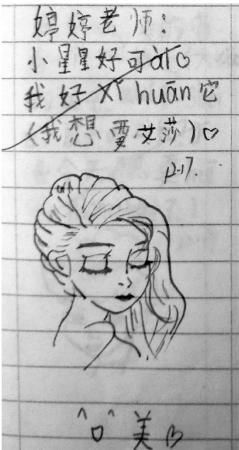 婷婷老师:
小星星好可ài♡
我好xǐ huān它
(我想要艾莎)♡
12-17.
^口^ 美♡